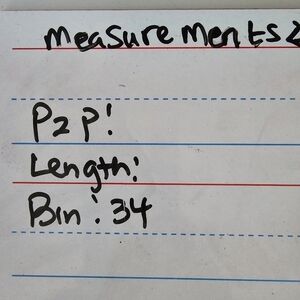 Measurements
P2P!
Length!
Bin: 34